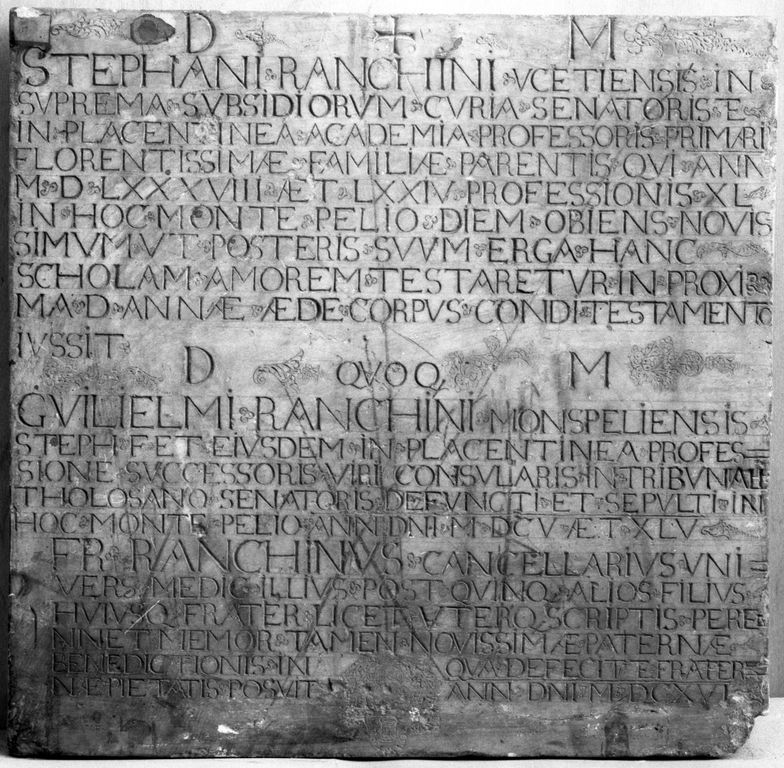 D + M
STEPHANI·RANCHINI·VCETIENSIS·IN
SVPREMA·SVBSIDIORVM·CVRIA·SENATORIS·E
IN·PLACENTINEA·ACADEMIA·PROFESSORIS·PRIMARI
FLORENTISSIMÆ·FAMILIÆ·PARENTIS·QVI·ANN
M·D·LXXXVIII·ÆT·LXXIV·PROFESSIONIS·XL
IN·HOC·MONTE·PELIO·DIEM·OBIENS·NOVIS
SIMVM·VT·POSTERIS·SVVM·ERGA·HANC
SCHOLAM·AMOREM·TESTARETVR·IN·PROXI
MA·D·ANNÆ·ÆDE·CORPVS·CONDI·TESTAMENTO
IVSSIT
D QVOQ M
GVILIELMI·RANCHINI·MONSPELIENSIS
STEPH·F·ET·EIVSDEM·IN·PLACENTINEA·PROFES=
SIONE·SVCCESSORIS·VIRI·CONSVLARIS·IN·TRIBVNALI
THOLOSANO·SENATORIS·DEFVNCTI·ET·SEPVLTI·IN
HOC·MONTE·PELIO·ANN·DNI·M·DCV·ÆT·XLV
FR·RANCHINVS·CANCELLARIVS·VNI=
VERS·MEDIC·ILLIVS·POST·QVINQ·ALIOS·FILIVS
HVIVSQ·FRATER·LICET·VTERQ·SCRIPTIS·PEREN
NINET·MEMOR·TAMEN·NOVISSIMÆ·PATERNÆ
BENEDICTIONIS·IN QVA·DEFECIT·E·FRATER
NÆ·PIETATIS·POSVIT ANN·DNI·M·DCXVI